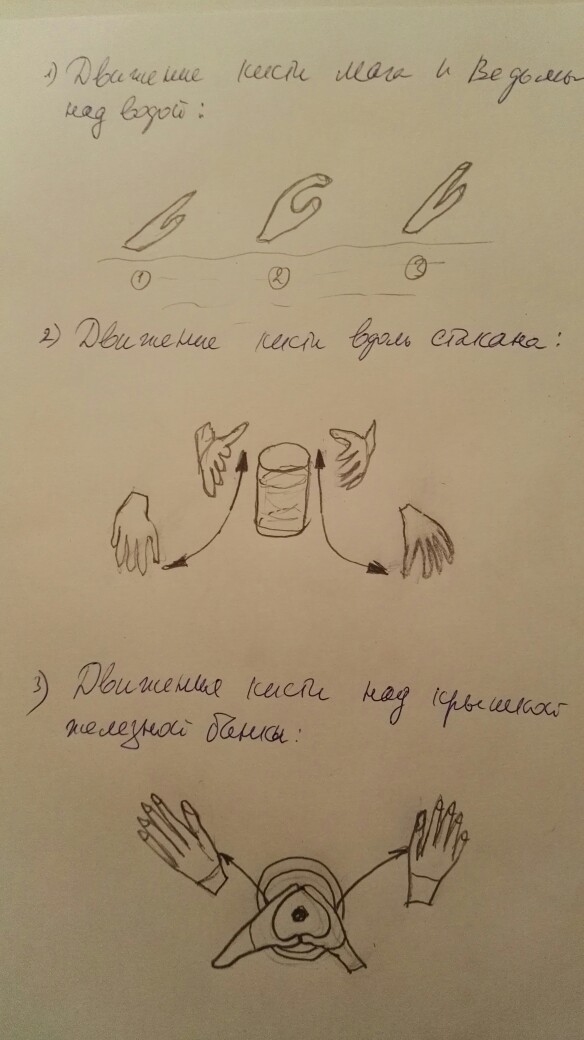 1) Движение кисти мага и Ведьмы
над водой:
① ② ③
2) Движение кисти вдоль стакана:
3) Движения кисти над крышкой
железной банки: